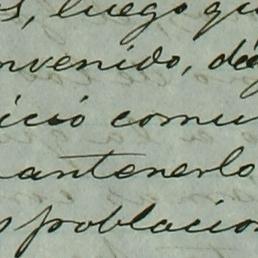 s, luego qu
nvenido, dé
ició comu
antenerlo
s poblacion